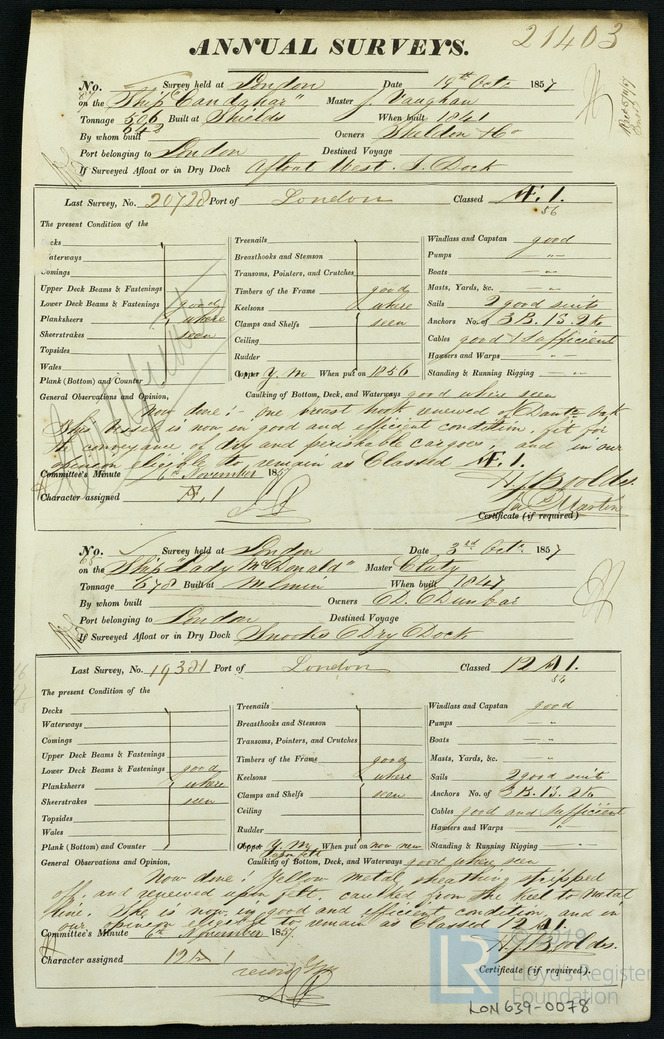 21403
ANNUAL SURVEYS.
No. 67 Survey held at London Date 19th Octr 1857
on the Ship "Candahar" Master J. Vaughan
Tonnage 506 Built at Shields When built 1841
642
By whom built Owners Sheldon & Co
Port belonging to London Destined Voyage
If Surveyed Afloat or in Dry Dock Afloat West. I. Dock
Last Survey, No. 20728 Port of London Classed Æ. 1.
56
The present Condition of the
Decks
Waterways
Comings
Upper Deck Beams & Fastenings
Lower Deck Beams & Fastenings good
Planksheers where
Sheerstrakes seen
Topsides
Wales
Plank (Bottom) and Counter
Treenails
Breasthooks and Stemson
Transoms, Pointers, and Crutches
Timbers of the Frame good
Keelsons where
Clamps and Shelfs seen
Ceiling
Rudder
Copper Y. M When put on 1856
Windlass and Capstan good
Pumps "
Boats "
Masts, Yards, &c. "
Sails 2 good suits
Anchors No. of 3 B. 1 S. 2 K
Cables good & sufficient
Hawsers and Warps "
Standing & Running Rigging "
General Observations and Opinion, Caulking of Bottom, Deck, and Waterways good where seen
Now done :- one breast hook renewed of Dantz. oak
This vessel is now in good and efficient condition, fit for
the conveyance of dry and perishable cargoes, and in our
opinion eligible to remain as Classed Æ. 1.
Committee's Minute 6th November 1857
Character assigned Æ. 1
Martin
Certificate (if required)
No. 68 Survey held at London Date 3rd Octr. 1857
on the Ship "Lady McDonald" Master
Tonnage 678 Built at When built 1847
By whom built Owners D. Dunbar
Port belonging to London Destined Voyage
If Surveyed Afloat or in Dry Dock Snooks Dry Dock
Last Survey, No. 19381 Port of London Classed 12 A 1.
The present Condition of the
Decks
Waterways
Comings
Upper Deck Beams & Fastenings
Lower Deck Beams & Fastenings good
Planksheers where
Sheerstrakes seen
Topsides
Wales
Plank (Bottom) and Counter
Treenails
Breasthooks and Stemson
Transoms, Pointers, and Crutches
Timbers of the Frame good
Keelsons where
Clamps and Shelfs seen
Ceiling
Rudder
Copper Y. M. When put on now new
upon felt
Windlass and Capstan good
Pumps "
Boats "
Masts, Yards, &c. "
Sails 2 good suits
Anchors No. of 3 B. 1 S. 2 K
Cables good and sufficient
Hawsers and Warps "
Standing & Running Rigging "
General Observations and Opinion, Caulking of Bottom, Deck, and Waterways good where seen
Now done : Yellow metal sheathing stripped
off, and renewed upon felt, caulked from the keel to metal
line. She is now in good and efficient condition, and in
our opinion eligible to remain as Classed 12 A1.
Committee's Minute 6th November 1857.
Character assigned 12 A 1
Certificate (if required).
LR © 2019
Lloyd's Register
Foundation
LON639-0078